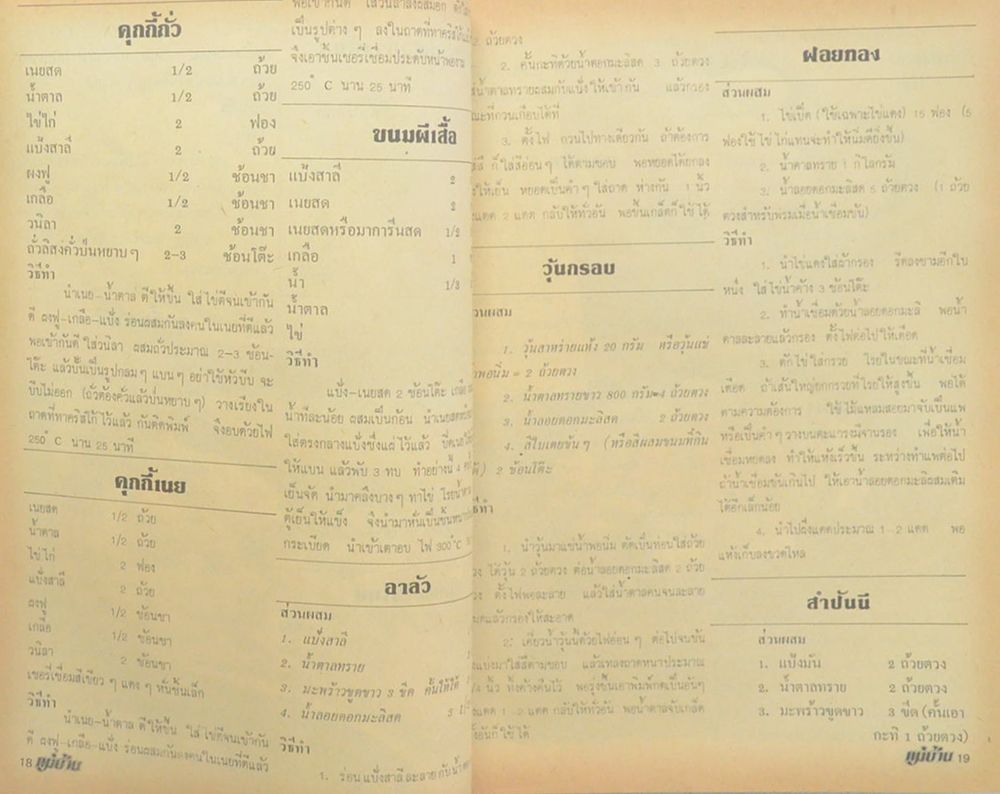 คุกกี้ถั่ว
เนยสด 1/2 ถ้วย
น้ำตาล 1/2 ถ้วย
ไข่ไก่ 2 ฟอง
แป้งสาลี 2 ถ้วย
ผงฟู 1/2 ช้อนชา
เกลือ 1/2 ช้อนชา
วนิลา 2 ช้อนชา
ถั่วลิสงคั่วป่นหยาบๆ 2-3 ช้อนโต๊ะ
วิธีทำ
นำเนย-น้ำตาล ตีให้ขึ้น ใส่ไข่ตีจนเข้ากัน
ดี ผงฟู-เกลือ-แป้ง ร่อนผสมกันลงคนในเนยที่ตีแล้ว
พอเข้ากันดี ใส่วนิลา ผสมถั่วประมาณ 2-3 ช้อน-
โต๊ะ แล้วปั้นเป็นรูปกลมๆ แบนๆ อย่าใช้หัวบีบ จะ
บีบไม่ออก (ถั่วต้องคั่วแล้วป่นหยาบๆ) วางเรียงใน
ถาดที่ทาคริสโก้ไว้แล้ว กันติดพิมพ์ จึงอบด้วยไฟ
250° C นาน 25 นาที
คุกกี้เนย
เนยสด 1/2 ถ้วย
น้ำตาล 1/2 ถ้วย
ไข่ไก่ 2 ฟอง
แป้งสาลี 2 ถ้วย
ผงฟู 1/2 ช้อนชา
เกลือ 1/2 ช้อนชา
วนิลา 2 ช้อนชา
เชอรี่เชื่อมสีเขียวๆ แดงๆ หั่นชิ้นเล็ก
วิธีทำ
นำเนย-น้ำตาล ตีให้ขึ้น ใส่ไข่ตีจนเข้ากัน
ดี ผงฟู-เกลือ-แป้ง ร่อนผสมกันลงคนในเนยที่ตีแล้ว
18 แม่บ้าน
พอเข้ากันดี ใส่วนิลาลงผสมอีก
เป็นรูปต่างๆ ลงในถาดที่ทาคริสโก้
จึงเอาชิ้นเชอรี่เชื่อมประดับหน้าพองาม
250° C นาน 25 นาที
ขนมผีเสื้อ
แป้งสาลี 2
เนยสด 2
เนยสดหรือมาการีนสด 1/2
เกลือ 1
น้ำ 1/3
น้ำตาล
ไข่
วิธีทำ
แป้ง-เนยสด 2 ช้อนโต๊ะ เกลือ
น้ำทีละน้อย ผสมเป็นก้อน นำเนยสด
ใส่ตรงกลางแป้งซึ่งแผ่ไว้แล้ว
ให้แบน แล้วพับ 3 ทบ ทำอย่างนี้ 4
เย็นจัด นำมาคลึงบางๆ ทาไข่ โรยน้ำตาล
ตู้เย็นให้แข็ง จึงนำมาหั่นเป็นชิ้น
กระเบียด นำเข้าเตาอบ ไฟ 300°C
อาลัว
ส่วนผสม
1. แป้งสาลี
2. น้ำตาลทราย
3. มะพร้าวขูดขาว 3 ขีด คั้นให้ได้
4. น้ำลอยดอกมะลิสด 3
วิธีทำ
1. ร่อนแป้งสาลี ละลายกับน้ำ
2 ถ้วยตวง
2. คั้นกะทิด้วยน้ำดอกมะลิสด 3 ถ้วยตวง
น้ำตาลทรายผสมกับแป้งให้เข้ากัน แล้วกรอง
3. ตั้งไฟ กวนไปทางเดียวกัน ถ้าต้องการ
สี ก็ใส่สีอ่อนๆ ได้ตามชอบ พอหยอดได้ยกลง
ให้เย็น หยอดเป็นคำๆ ใส่ถาด ห่างกัน 1 นิ้ว
แดด 2 แดด กลับให้ทั่วอัน พอขึ้นเกล็ดก็ใช้ได้
วุ้นกรอบ
ส่วนผสม
1. วุ้นสาหร่ายแห้ง 20 กรัม หรือวุ้นแช่
พอนิ่ม = 2 ถ้วยตวง
2. น้ำตาลทรายขาว 800 กรัม=4 ถ้วยตวง
3. น้ำลอยดอกมะลิสด 2 ถ้วยตวง
4. สีใบเตยข้นๆ (หรือสีผสมขนมที่กิน
2 ช้อนโต๊ะ
1. นำวุ้นมาแช่น้ำพอนิ่ม ตัดเป็นท่อนใส่ถ้วย
ตวง ได้วุ้น 2 ถ้วยตวง ต่อน้ำลอยดอกมะลิสด 2 ถ้วย
ตวง ตั้งไฟพอละลาย แล้วใส่น้ำตาลคนจนละลาย
หมดแล้วกรองให้สะอาด
2. เคี่ยววุ้นนี้ด้วยไฟอ่อนๆ ต่อไปจนข้น
แบ่งมาใส่สีตามชอบ แล้วเทลงถาดหนาประมาณ
นิ้ว ทิ้งค้างคืนไว้ พอรุ่งขึ้นเอาพิมพ์กดเป็นอันๆ
แดด 1-2 แดด กลับให้ทั่วอัน พอน้ำตาลจับเกล็ด
ใช้ได้
ฝอยทอง
ส่วนผสม
1. ไข่เป็ด (ใช้เฉพาะไข่แดง) 15 ฟอง (5
ฟองใช้ไข่ไก่แทนจะทำให้นิ่มดียิ่งขึ้น)
2. น้ำตาลทราย 1 กิโลกรัม
3. น้ำลอยดอกมะลิสด 5 ถ้วยตวง (1 ถ้วย
ตวงสำหรับพรมเมื่อน้ำเชื่อมข้น)
วิธีทำ
1. นำไข่แดงใส่ผ้ากรอง รีดลงชามอีกใบ
หนึ่ง ใส่ไข่น้ำค้าง 3 ช้อนโต๊ะ
2. ทำน้ำเชื่อมด้วยน้ำลอยดอกมะลิ พอน้ำ
ตาลละลายแล้วกรอง ตั้งไฟต่อไปให้เดือด
3. ตักไข่ใส่กรวย โรยในขณะที่น้ำเชื่อม
เดือด ถ้าเส้นใหญ่ยกกรวยที่โรยให้สูงขึ้น พอได้
ตามความต้องการ ใช้ไม้แหลมสอยมาจับเป็นแพ
หรือเป็นคำๆ วางบนตะแกรงมีจานรอง เพื่อให้น้ำ
เชื่อมหยดลง ทำให้แห้งเร็วขึ้น ระหว่างทำแพต่อไป
ถ้าน้ำเชื่อมข้นเกินไป ให้เอาน้ำลอยดอกมะลิผสมเติม
ได้อีกเล็กน้อย
4. นำไปผึ่งแดดประมาณ 1-2 แดด พอ
แห้งเก็บลงขวดโหล
สำปันนี
ส่วนผสม
1. แป้งมัน 2 ถ้วยตวง
2. น้ำตาลทราย 2 ถ้วยตวง
3. มะพร้าวขูดขาว 3 ขีด (คั้นเอา
กะทิ 1 ถ้วยตวง)
แม่บ้าน 19